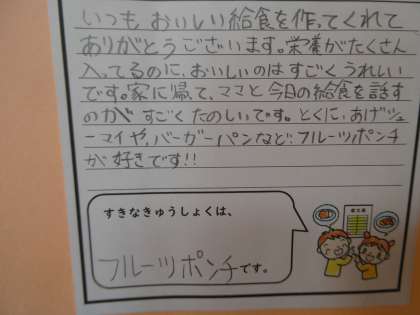 いつも、おいしい給食を作ってくれて
ありがとうございます。栄養がたくさん
入ってるのに、おいしいのはすごくうれしい
です。家に帰って、ママと今日の給食を話す
のがすごくたのしいです。とくに、あげシュ
ーマイや、バーガーパンなど、フルーツポンチ
が好きです!!
すきなきゅうしょくは、
フルーツポンチです。